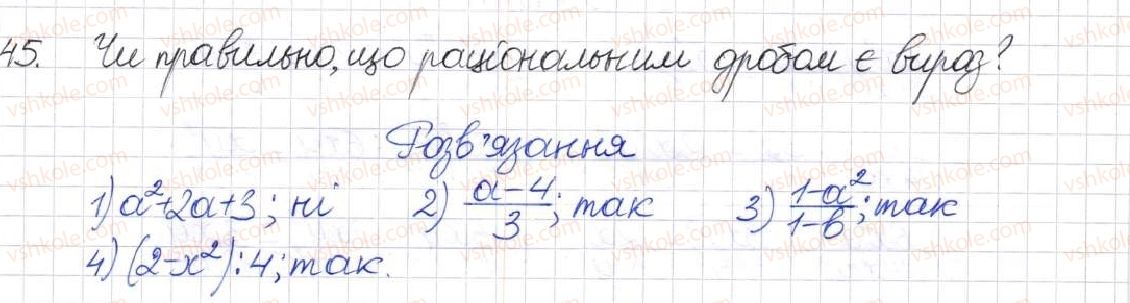 45. Чи правильно, що раціональним дробом є вираз?
Розв'язання
1) a²+2a+3; ні 2) (a-4)/3; так 3) (1-a²)/(1-b); так
4) (2-x²):4; так.